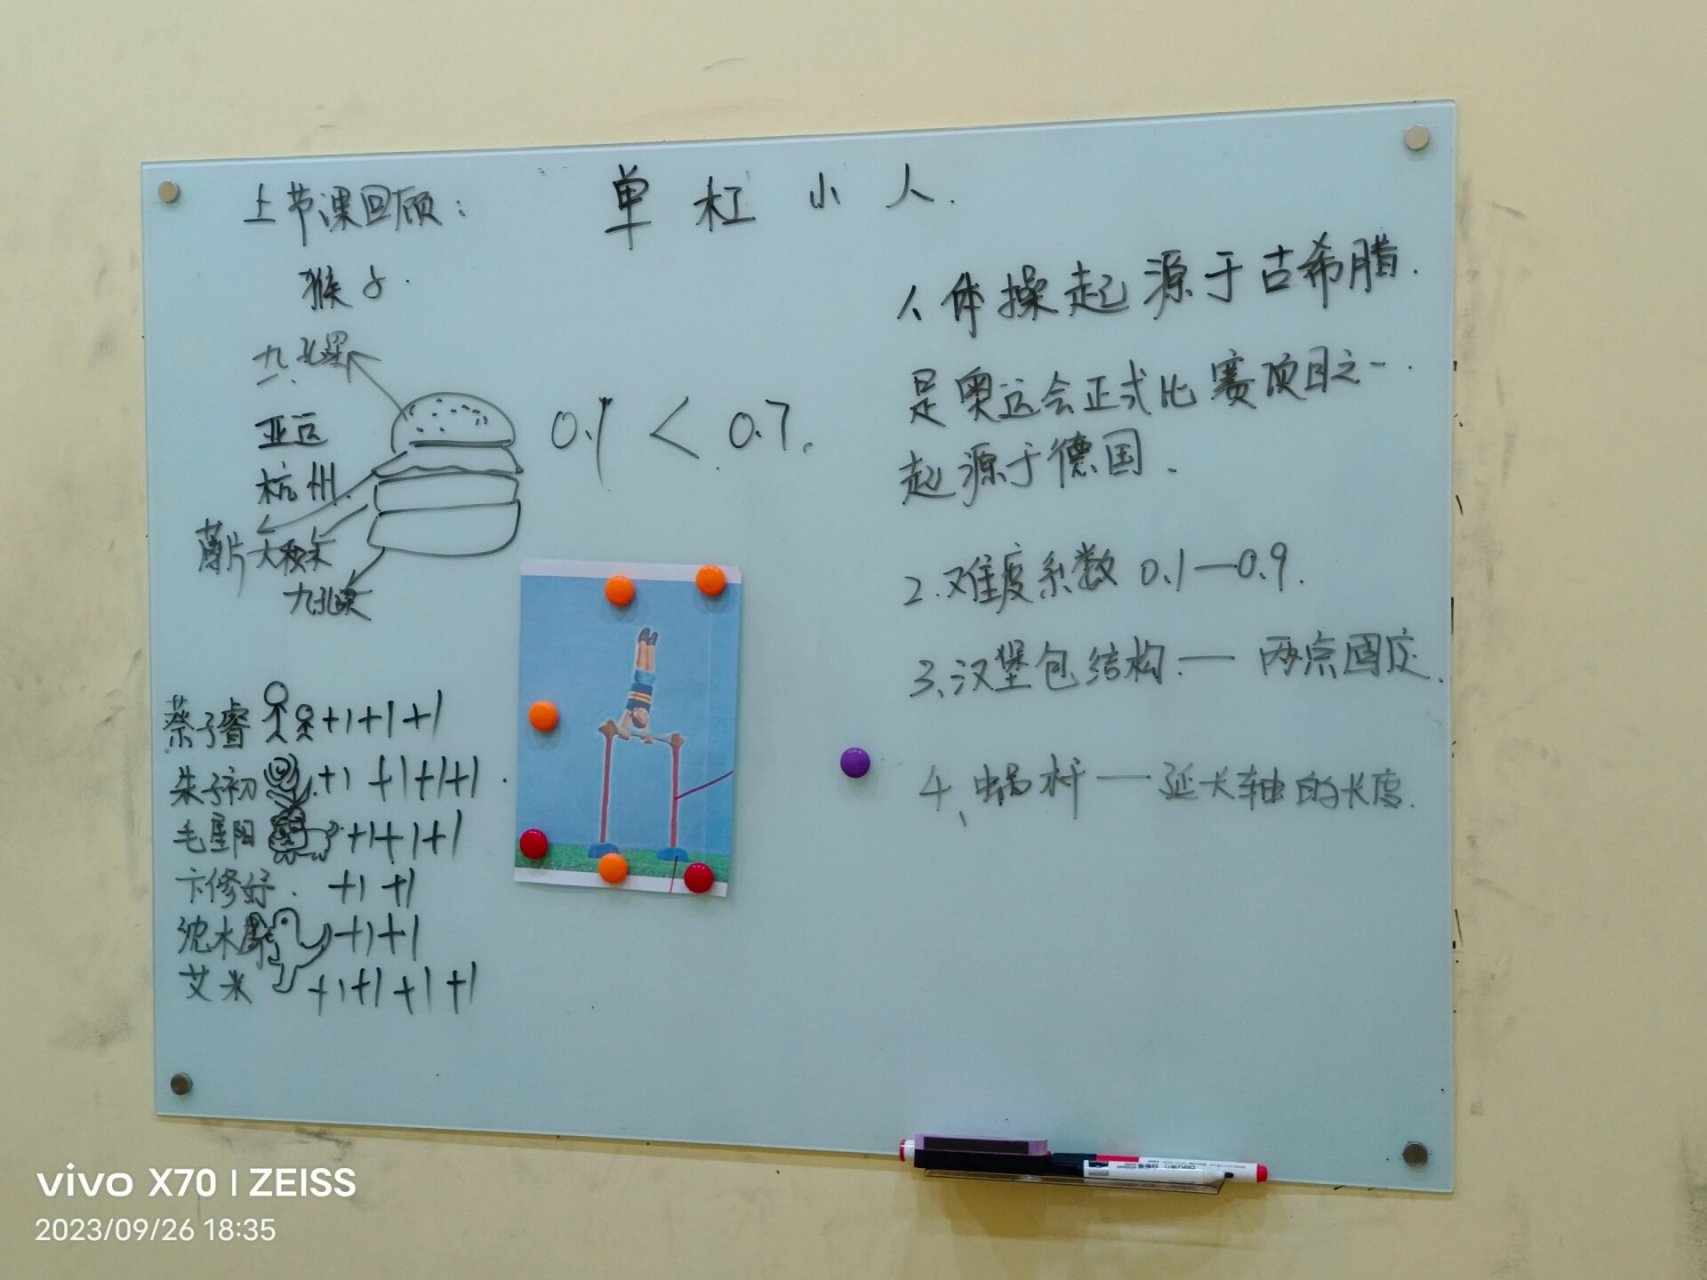 上节课回顾：
单杠小人.
猴子.
九孔梁
亚运
杭州.
薄片大积木
九孔梁
0.1 < 0.7.
1、体操起源于古希腊.
是奥运会正式比赛项目之一.
起源于德国.
2.难度系数 0.1—0.9.
3、汉堡包结构 — 两点固定.
4、蜗杆 — 延长轴的长度.
蔡子睿 +1+1+1
朱子初 +1 +1+1+1
毛星阳 +1+1+1
卞修妤. +1 +1
沈木 +1+1
艾米 +1+1+1+1
vivo X70 | ZEISS
2023/09/26 18:35